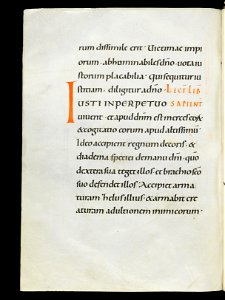 rum dissimile erit Victimae impi
orum abhominabiles dño uota iu
storum placabilia qui sequitur iu
stitiam diligitur a dño LECT LIB
IUSTI IN PERPETUO SAPIENT
uiuent et apud dnm est merces eorū
& cogitatio eorum apud altissimū
Ideo accipient regnum decoris &
diadema speciei de manu dnī quo
dextera sua teget illos et brachio sco
suo defendet illos Accipiet arma
turam zelus illius & armabit cre
aturam ad ultionem inimicorum